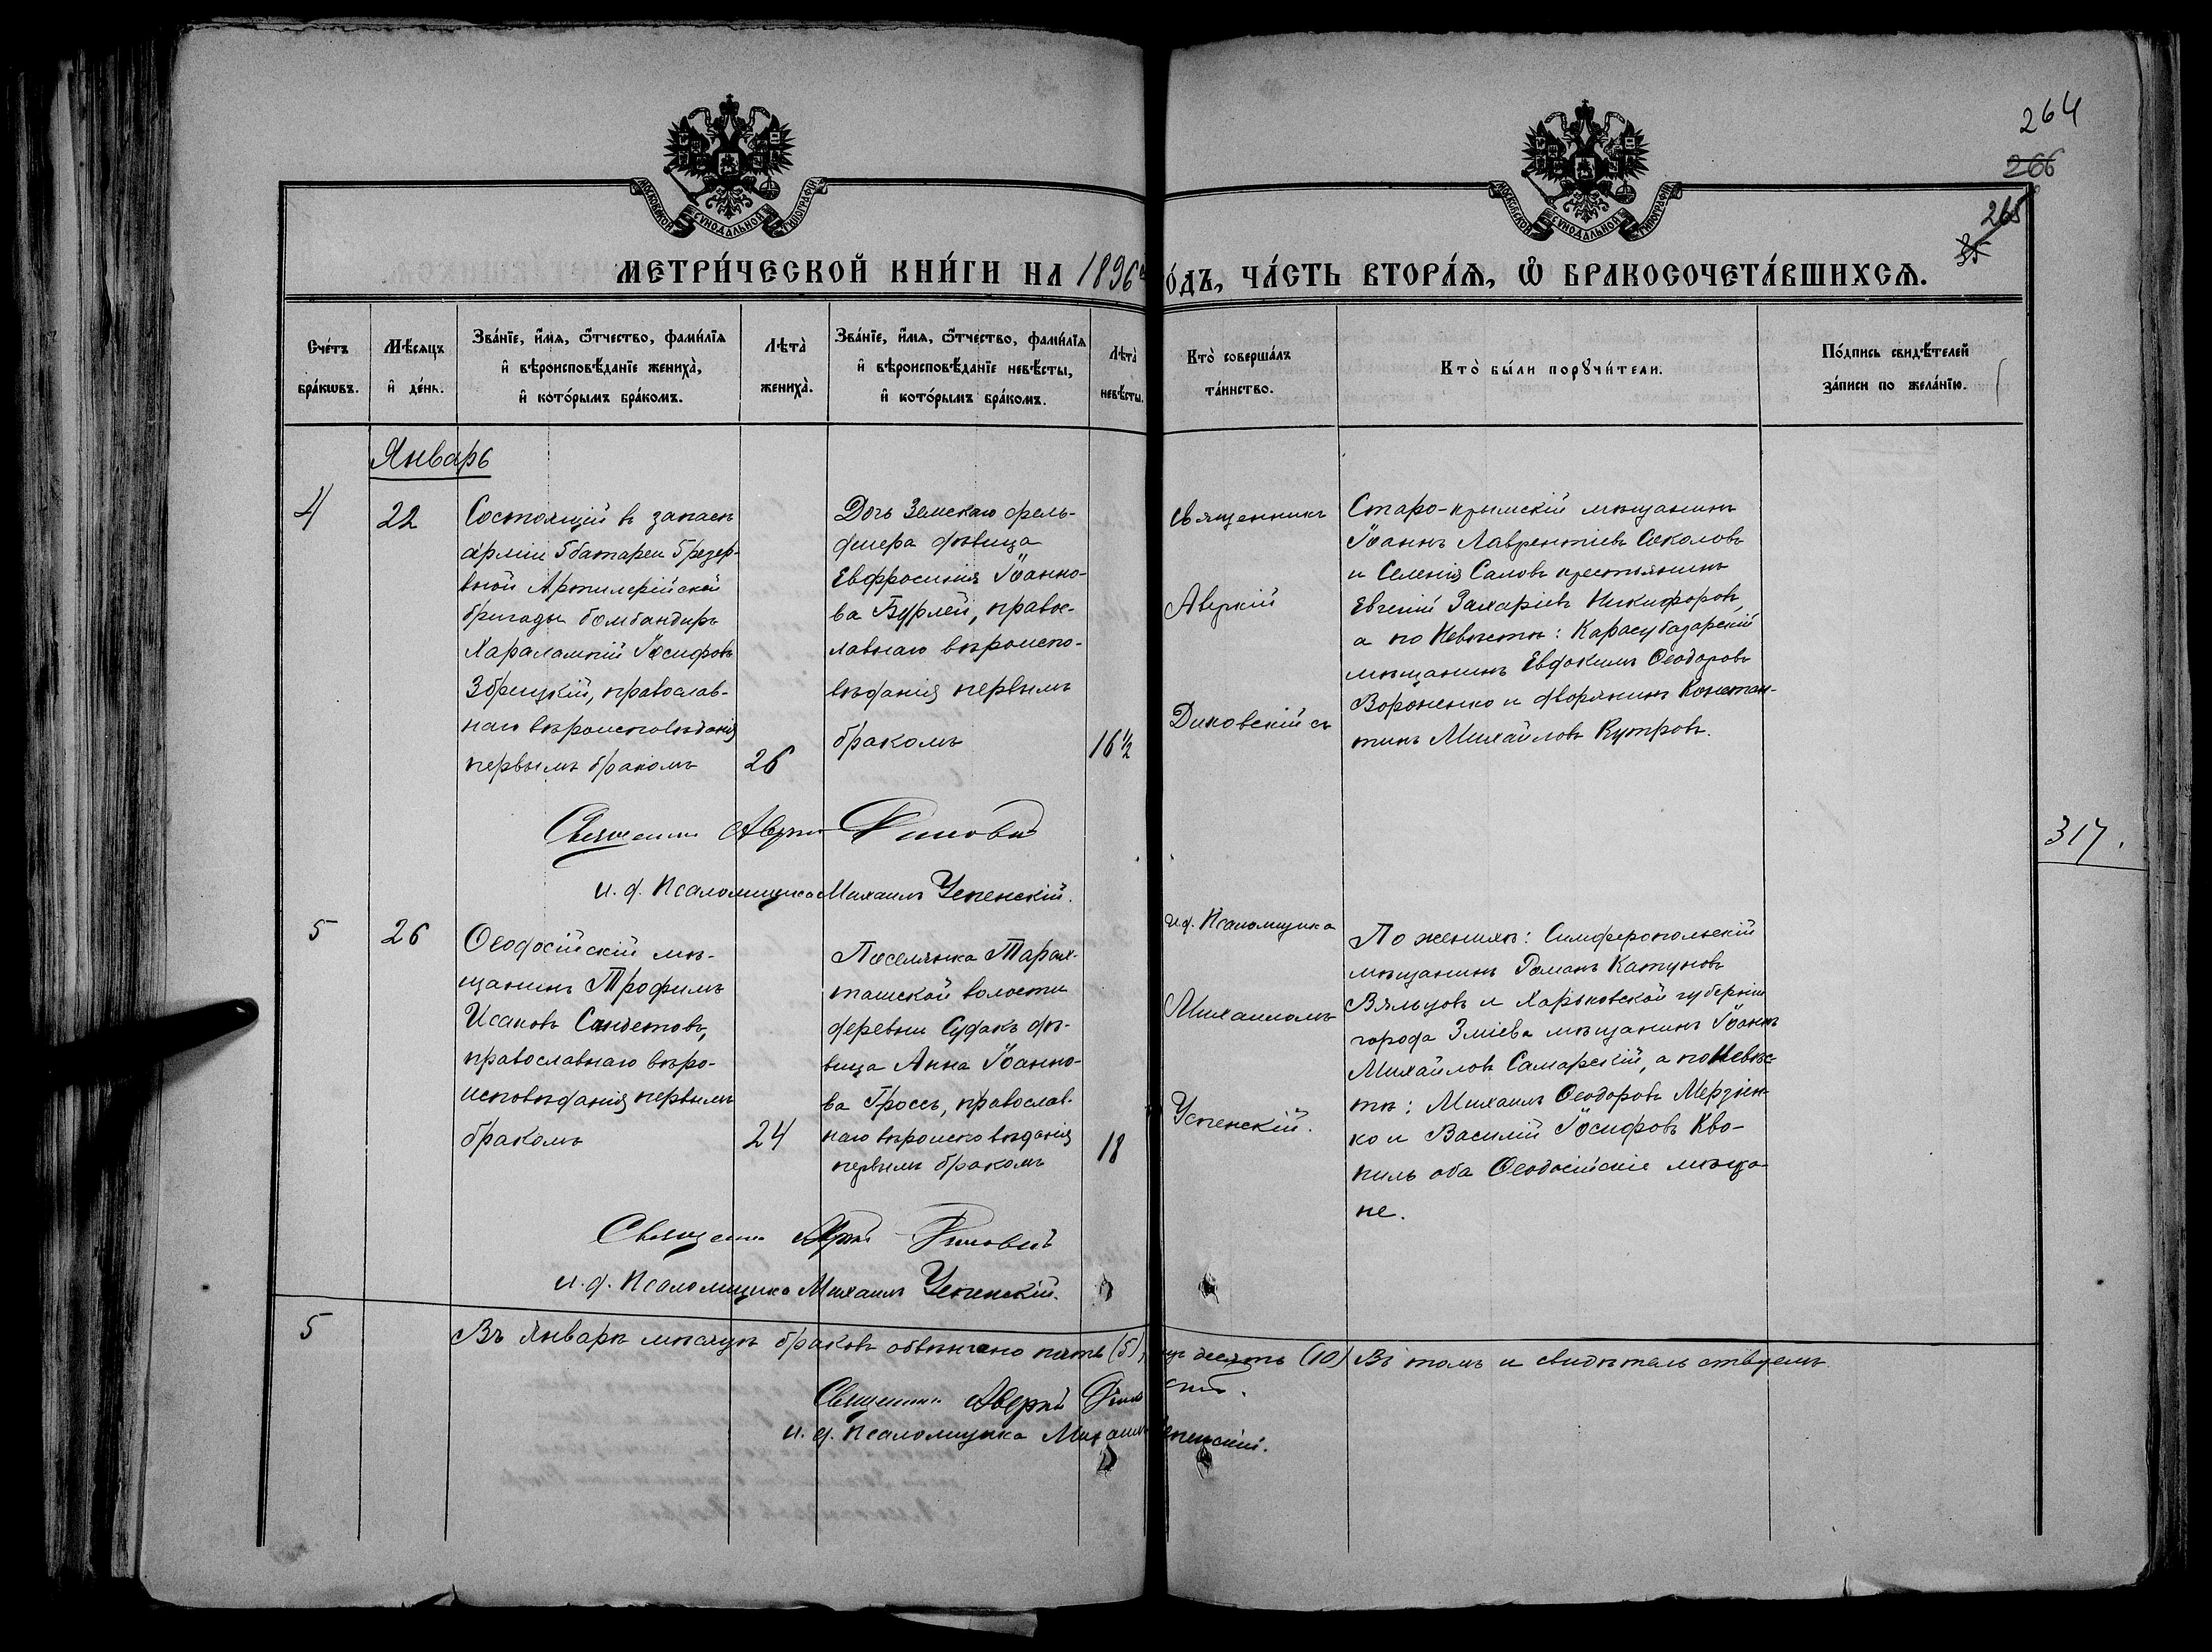 264
266
265
МОСКОВСКОЙ СУНОДАЛЬНОЙ ТИПОГРАФІИ
МОСКОВСКОЙ СУНОДАЛЬНОЙ ТИПОГРАФІИ
МЕТРИ́ЧЕСКОЙ КНИ́ГИ НА 1896 го́дъ, ЧА́СТЬ ВТОРА́Ѧ, Ѿ БРАКОСОЧЕТА́ВШИХСѦ.
Сче́тъ бра́кѡвъ.
Мѣ́сѧцъ и҆ де́нь.
Зва́нїе, и҆́мѧ, ѻ҆́тчество, фами́лїѧ и҆ вѣроисповѣ́данїе жениха̀, и҆ кото́рымъ бра́комъ.
Лѣта̀ жениха̀.
Зва́нїе, и҆́мѧ, ѻ҆́тчество, фами́лїѧ и҆ вѣроисповѣ́данїе невѣ́сты, и҆ кото́рымъ бра́комъ.
Лѣта̀ невѣ́сты.
Кто̀ соверша́лъ та́инство.
Кто̀ бы́ли порꙋчи́тели.
По́дпись свидѣ́телей за́писи по жела́нїю.
Январь
4
22
Состоящій въ запасѣ
арміи 5 батареи 5 резер-
вной Артилерійской
бригады бомбандиръ
Харалампій Іосифовъ
Збрицкій, православ-
наго вѣроисповѣданія
первымъ бракомъ
26
Дочь Земскаго фель-
дшера дѣвица
Евфросинія Іоанно-
ва Бурлей, правос-
лавнаго вѣроиспо-
вѣданія первымъ
бракомъ
16½
Священникъ
Аверкій
Диковскій съ
Старо-крымскій мѣщанинъ
Іоаннъ Лаврентіевъ Соколовъ
и Селенія Саловъ крестьянинъ
Евгеній Захаріевъ Никифоровъ,
а по Невѣстѣ: Карасубазарскій
мѣщанинъ Евдокимъ Ѳеодоровъ
Вороненко и дворянинъ Констан-
тинъ Михайловъ Кутровъ.
Священникъ Аверкій Диковскій
и. д. Псаломщика Михаилъ Успенскій.
317.
5
26
Ѳеодосійскій мѣ-
щанинъ Трофимъ
Исаковъ
православнаго вѣро-
исповѣданія первымъ
бракомъ
24
Поселянка Тарак-
ташской волости
деревни Судакъ дѣ-
вица Анна Іоанно-
ва Гроссъ, православ-
наго вѣроисповѣданія
первымъ бракомъ
18
и.д. Псаломщика
Михаиломъ
Успенскій.
По женихѣ: Симферопольскій
мѣщанинъ Романъ Катуновъ
Вяльцовъ и Харьковской губерніи
города Зміева мѣщанинъ Іоаннъ
Михайловъ Самарскій, а по Невѣс-
тѣ: Михаилъ Ѳеодоровъ Мерзлен-
ко и Василій Іосифовъ Кво-
киль оба Ѳеодосійскіе мѣща-
не.
Священникъ Аверкій Диковскій
и. д. Псаломщика Михаилъ Успенскій.
5
Въ Январѣ мѣсяцѣ браковъ обвѣнчано пять (5), лицъ десять (10) Въ томъ и свидѣтельствуемъ
Священникъ Аверкій Диковскій.
и. д. Псаломщика Михаилъ Успенскій.